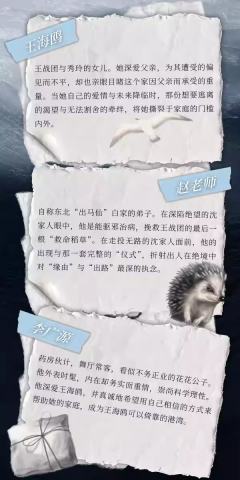 王海鸥
王战团与秀玲的女儿。她深爱父亲，为其遭受的偏
见而不平，却也亲眼目睹这个家因父亲而承受的重
量。当她自己的爱情与未来降临时，那份想要逃离
的渴望与无法割舍的牵绊，将她撕裂于家庭的门槛
内外。
赵老师
自称东北“出马仙”白家的弟子。在深陷绝望的沈
家人眼中，他是能驱邪治病，挽救王战团的最后一
根“救命稻草”。在走投无路的沈家人面前，他的
出现与那一套完整的“仪式”，折射出人在绝境中
对“缘由”与“出路”最深的执念。
李广源
药房伙计，舞厅常客，看似不务正业的花花公子。
他外表时髦，内在却务实而重情，崇尚科学理性。
他深爱王海鸥，并真诚地希望用自己相信的方式来
帮助她的家庭，成为王海鸥可以倚靠的港湾。